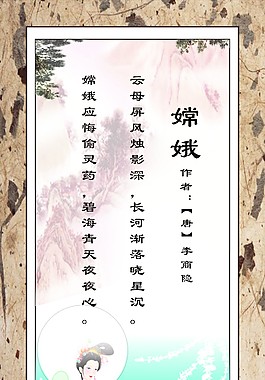 嫦娥
作者：【唐】李商隐
云母屏风烛影深，长河渐落晓星沉。
嫦娥应悔偷灵药，碧海青天夜夜心。